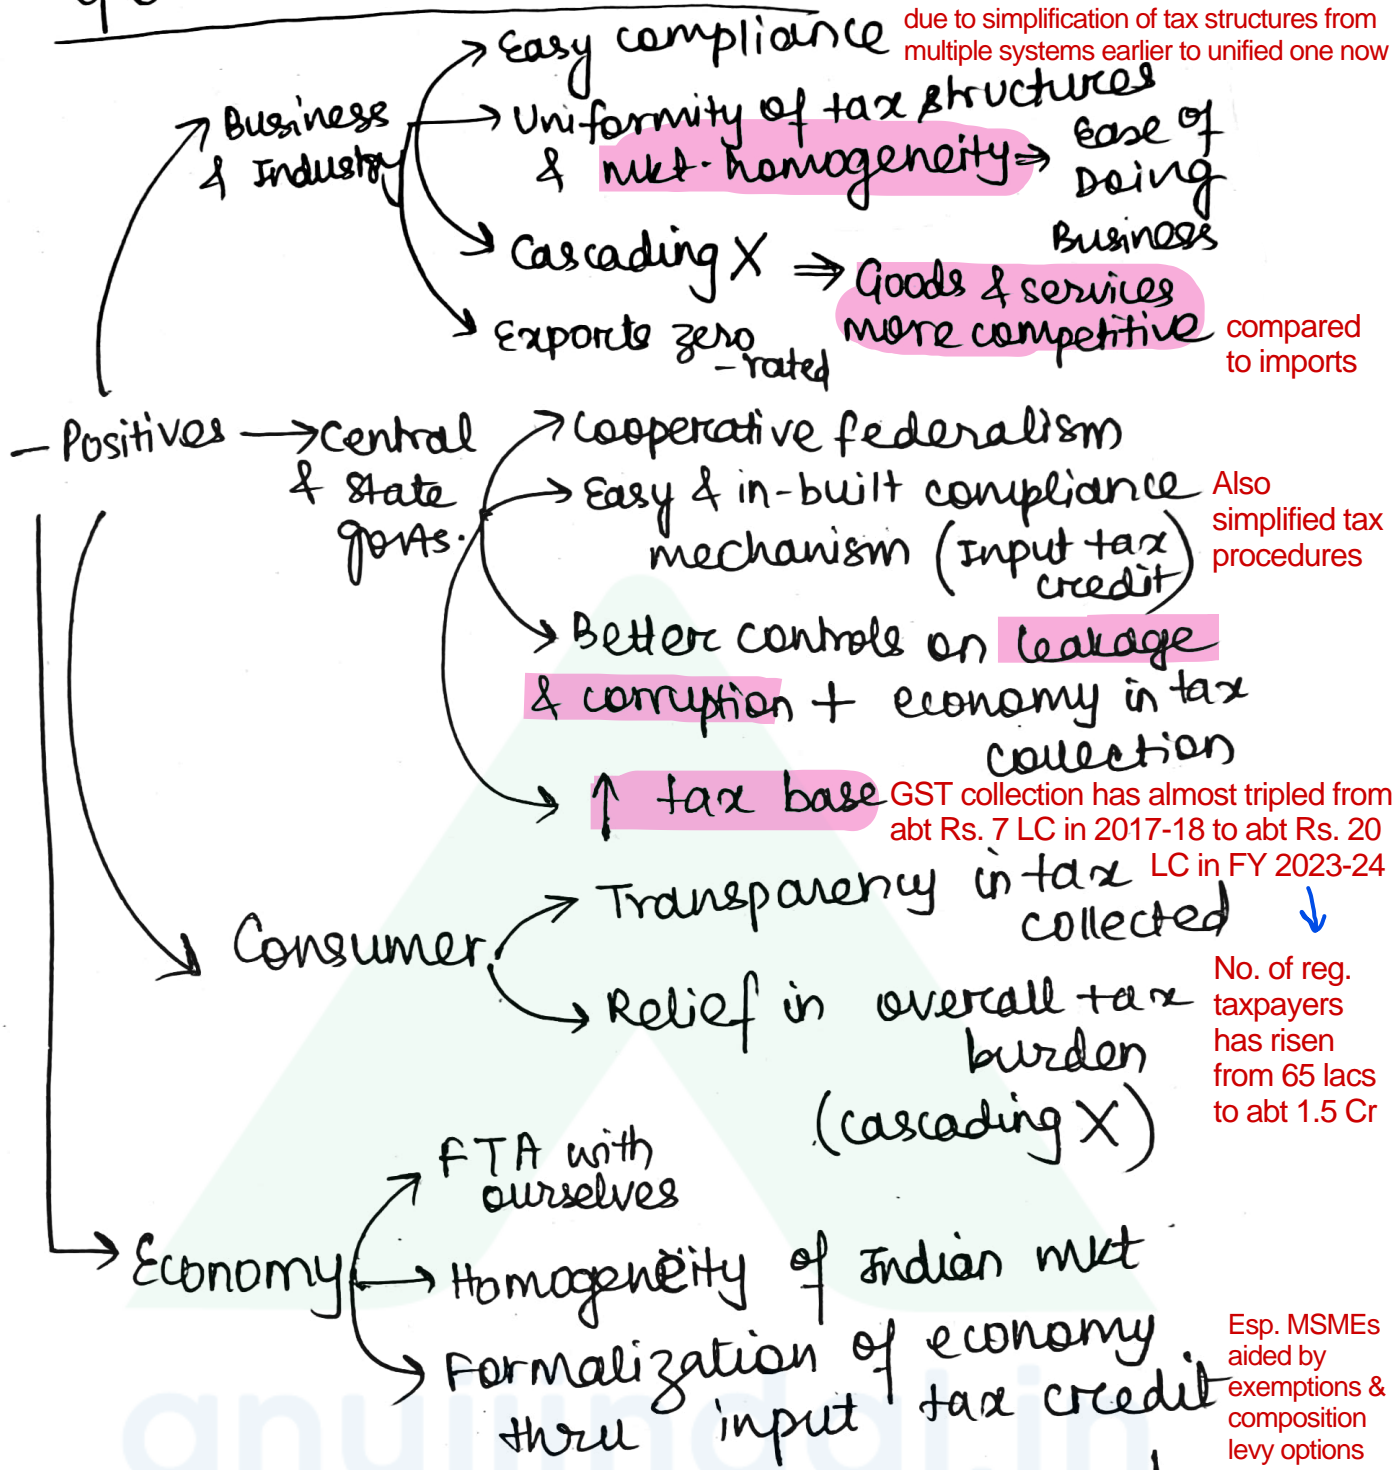 Easy compliance
due to simplification of tax structures from
multiple systems earlier to unified one now
Business
& Industry
Uniformity of tax structures
& mkt. homogeneity ⇒ Ease of
Doing
Business
Cascading X ⇒ Goods & services
more competitive
compared
to imports
Exports zero
-rated
- Positives → Central
& State
govts.
Cooperative federalism
Easy & in-built compliance
mechanism (Input tax
credit)
Also
simplified tax
procedures
Better controls on leakage
& corruption + economy in tax
collection
↑ tax base
GST collection has almost tripled from
abt Rs. 7 LC in 2017-18 to abt Rs. 20
LC in FY 2023-24
No. of reg.
taxpayers
has risen
from 65 lacs
to abt 1.5 Cr
Consumer
Transparency in tax
collected
Relief in overall tax
burden
(cascading X)
Economy
FTA with
ourselves
Homogeneity of Indian mkt
Formalization of economy
thru input tax credit
Esp. MSMEs
aided by
exemptions &
composition
levy options
anujjindal.in